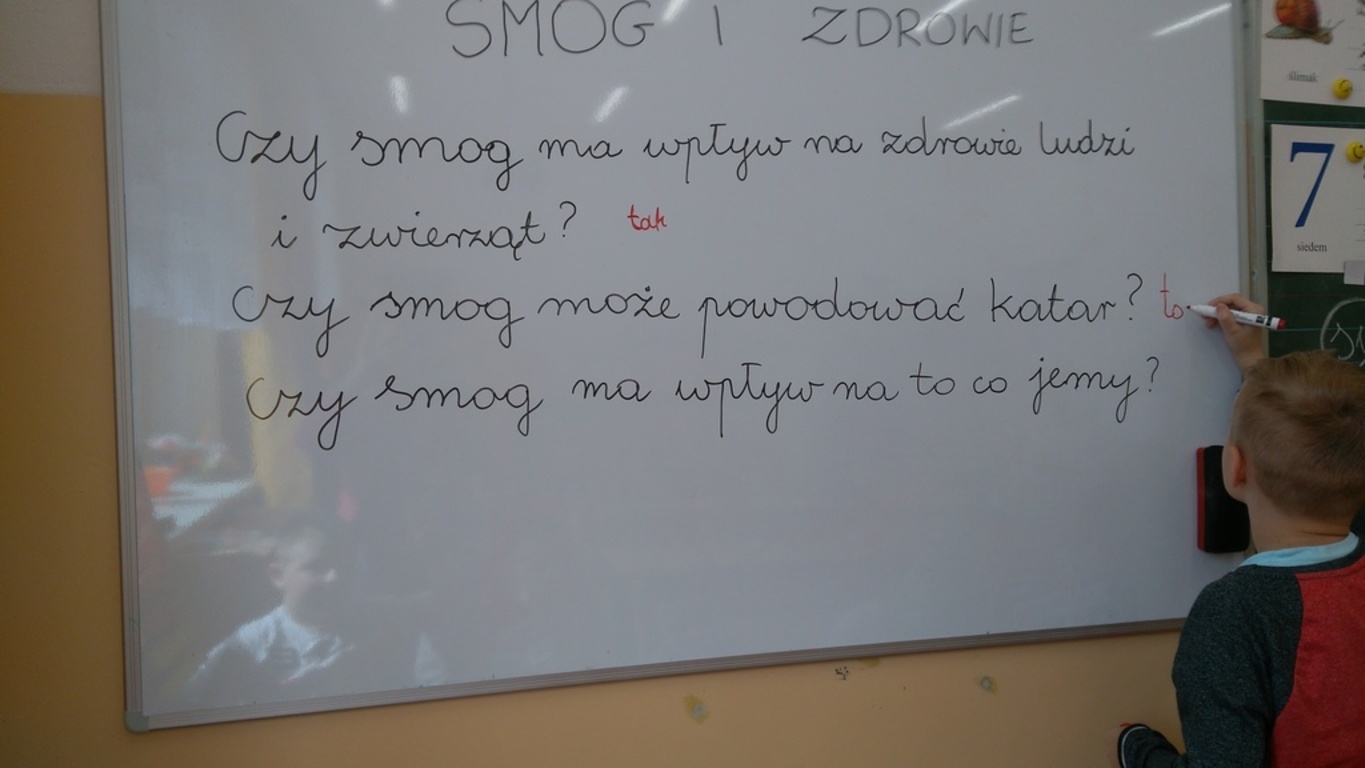 SMOG I ZDROWIE
Czy smog ma wpływ na zdrowie ludzi
i zwierząt? tak
Czy smog może powodować katar? to
Czy smog ma wpływ na to co jemy?
ślimak
7
siedem